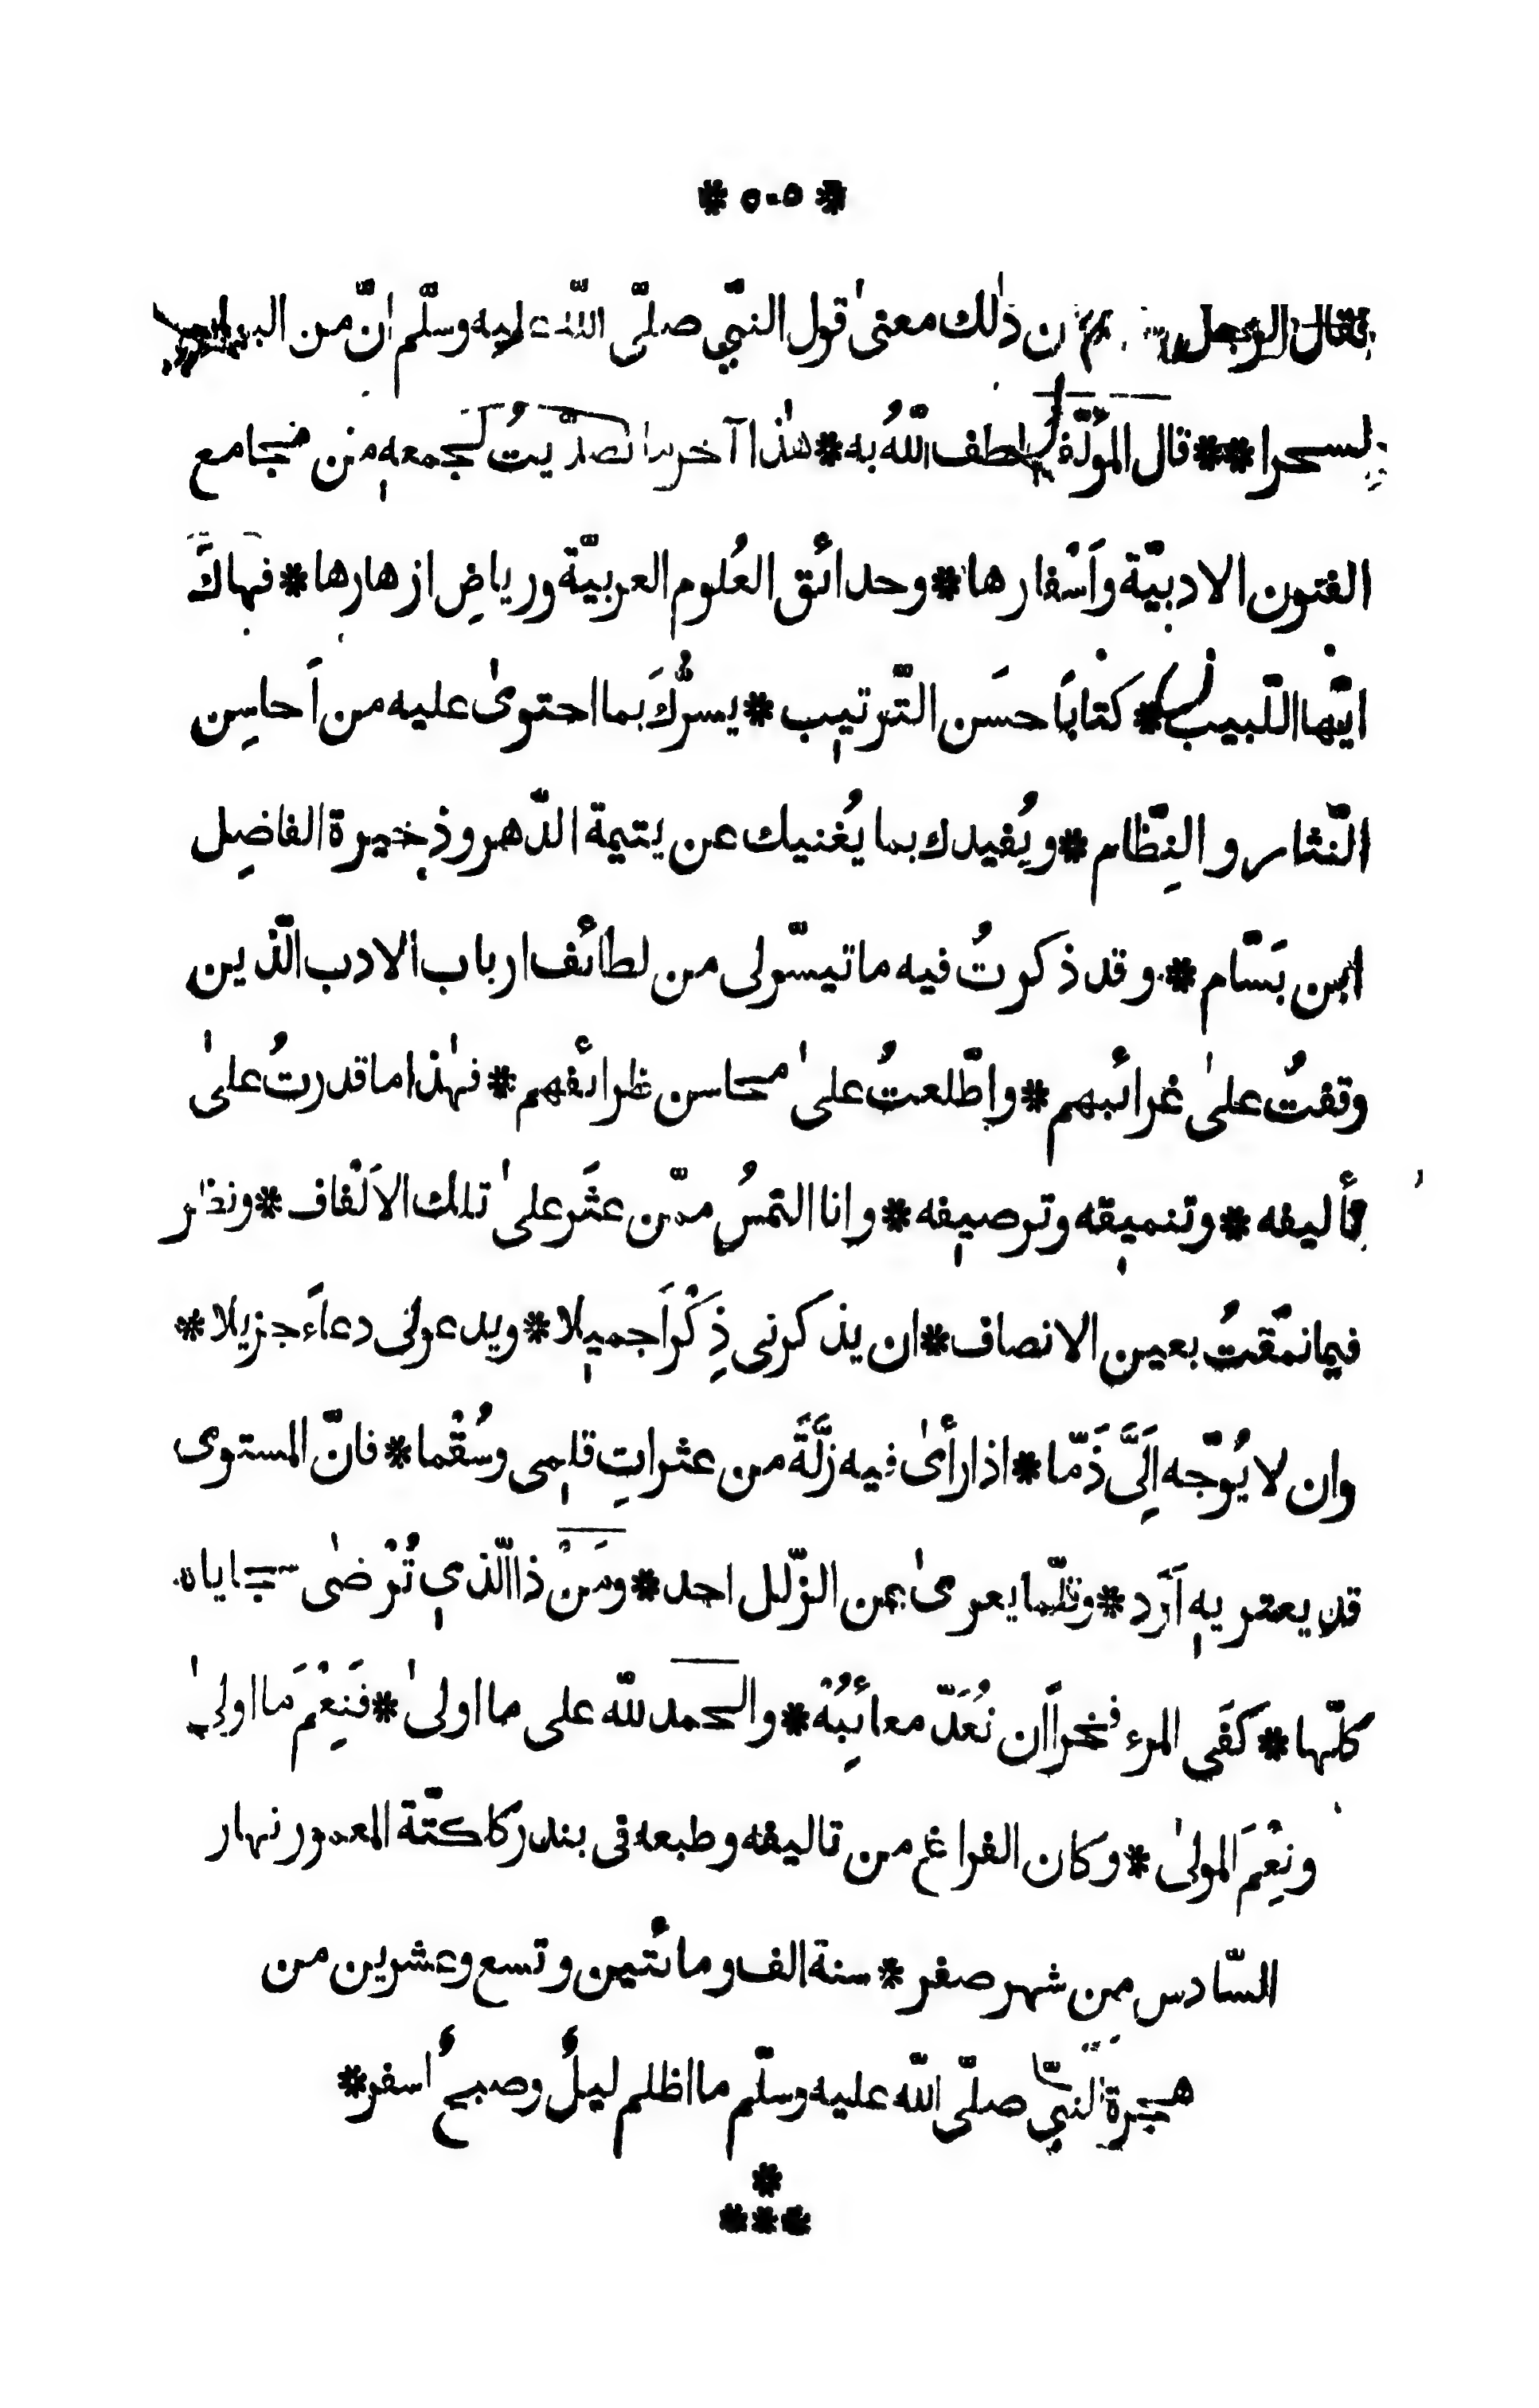 * ٥٠٥ *
فقال الرجل ذٰلك معنىٰ قول النبّي صلّى اللّه عليه وسلّم انّ من البيان
لسحرا ** قال المؤلّف لطف اللّهُ به * هٰذا آخر ما تصدّيتُ لجمعهٖ من مجامع
الفنون الادبيّة وَاَسْفارها * وحدائق العُلوم العربيّة ورياضِ ازهارها * فهاكَ
ايّها اللّبيب * كتابًا حسَن التّرتيب * يسرُّكَ بما احتوىٰ عليه من اَحاسِن
النّثار والنِظّام * ويُفيدك بما يُغنيك عن يتيمة الدّهر وذخيرة الفاضِل
ابن بَسّام * وقد ذكرتُ فيه ما تيسّر لى من لطائف ارباب الادب الّذين
وقفتُ علىٰ غرائبهم * واطّلعتُ علىٰ محاسن ظرائفهم * فهٰذا ما قدرتُ علىٰ
تأليفه * وتنميقه وترصيفه * وانا التمسُ ممّن عثَر علىٰ تلك الاَلْفاف * ونظر
فيما نمّقتُ بعين الانصاف * ان يذكرنى ذِكْراً جميلا * ويدعو لى دعاءً جزيلا *
وان لا يُوجّه اِلَىَّ ذَمّا * اذا رأىٰ فيه زلَّةً من عثراتِ قلمى وسُقْما * فانّ المستوى
قد يعتريهٖ اَوَد * وقلّما يعرىٰ من الزّلل احد * ومَنْ ذا الّذي تُرْضىٰ سجاياه
كلّها * كفَى المرء فخراً ان تُعَدّ معائبُهْ * والحمد للّه على ما اولىٰ * فَنِعْمَ ما اولىٰ
ونِعْمَ المولىٰ * وكان الفراغ من تاليفه وطبعه فى بندر كلكتّة المعمور نهار
السّادس من شهر صفر * سنة الف ومائتين وتسع وعشرين من
هجرة النبيّ صلّى اللّه عليه وسلّم ما اظلم ليلٌ وصبحٌ اسفر *
*
***